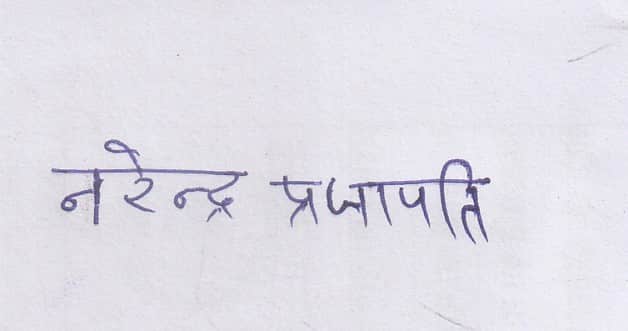 नरेन्द्र प्रजापति